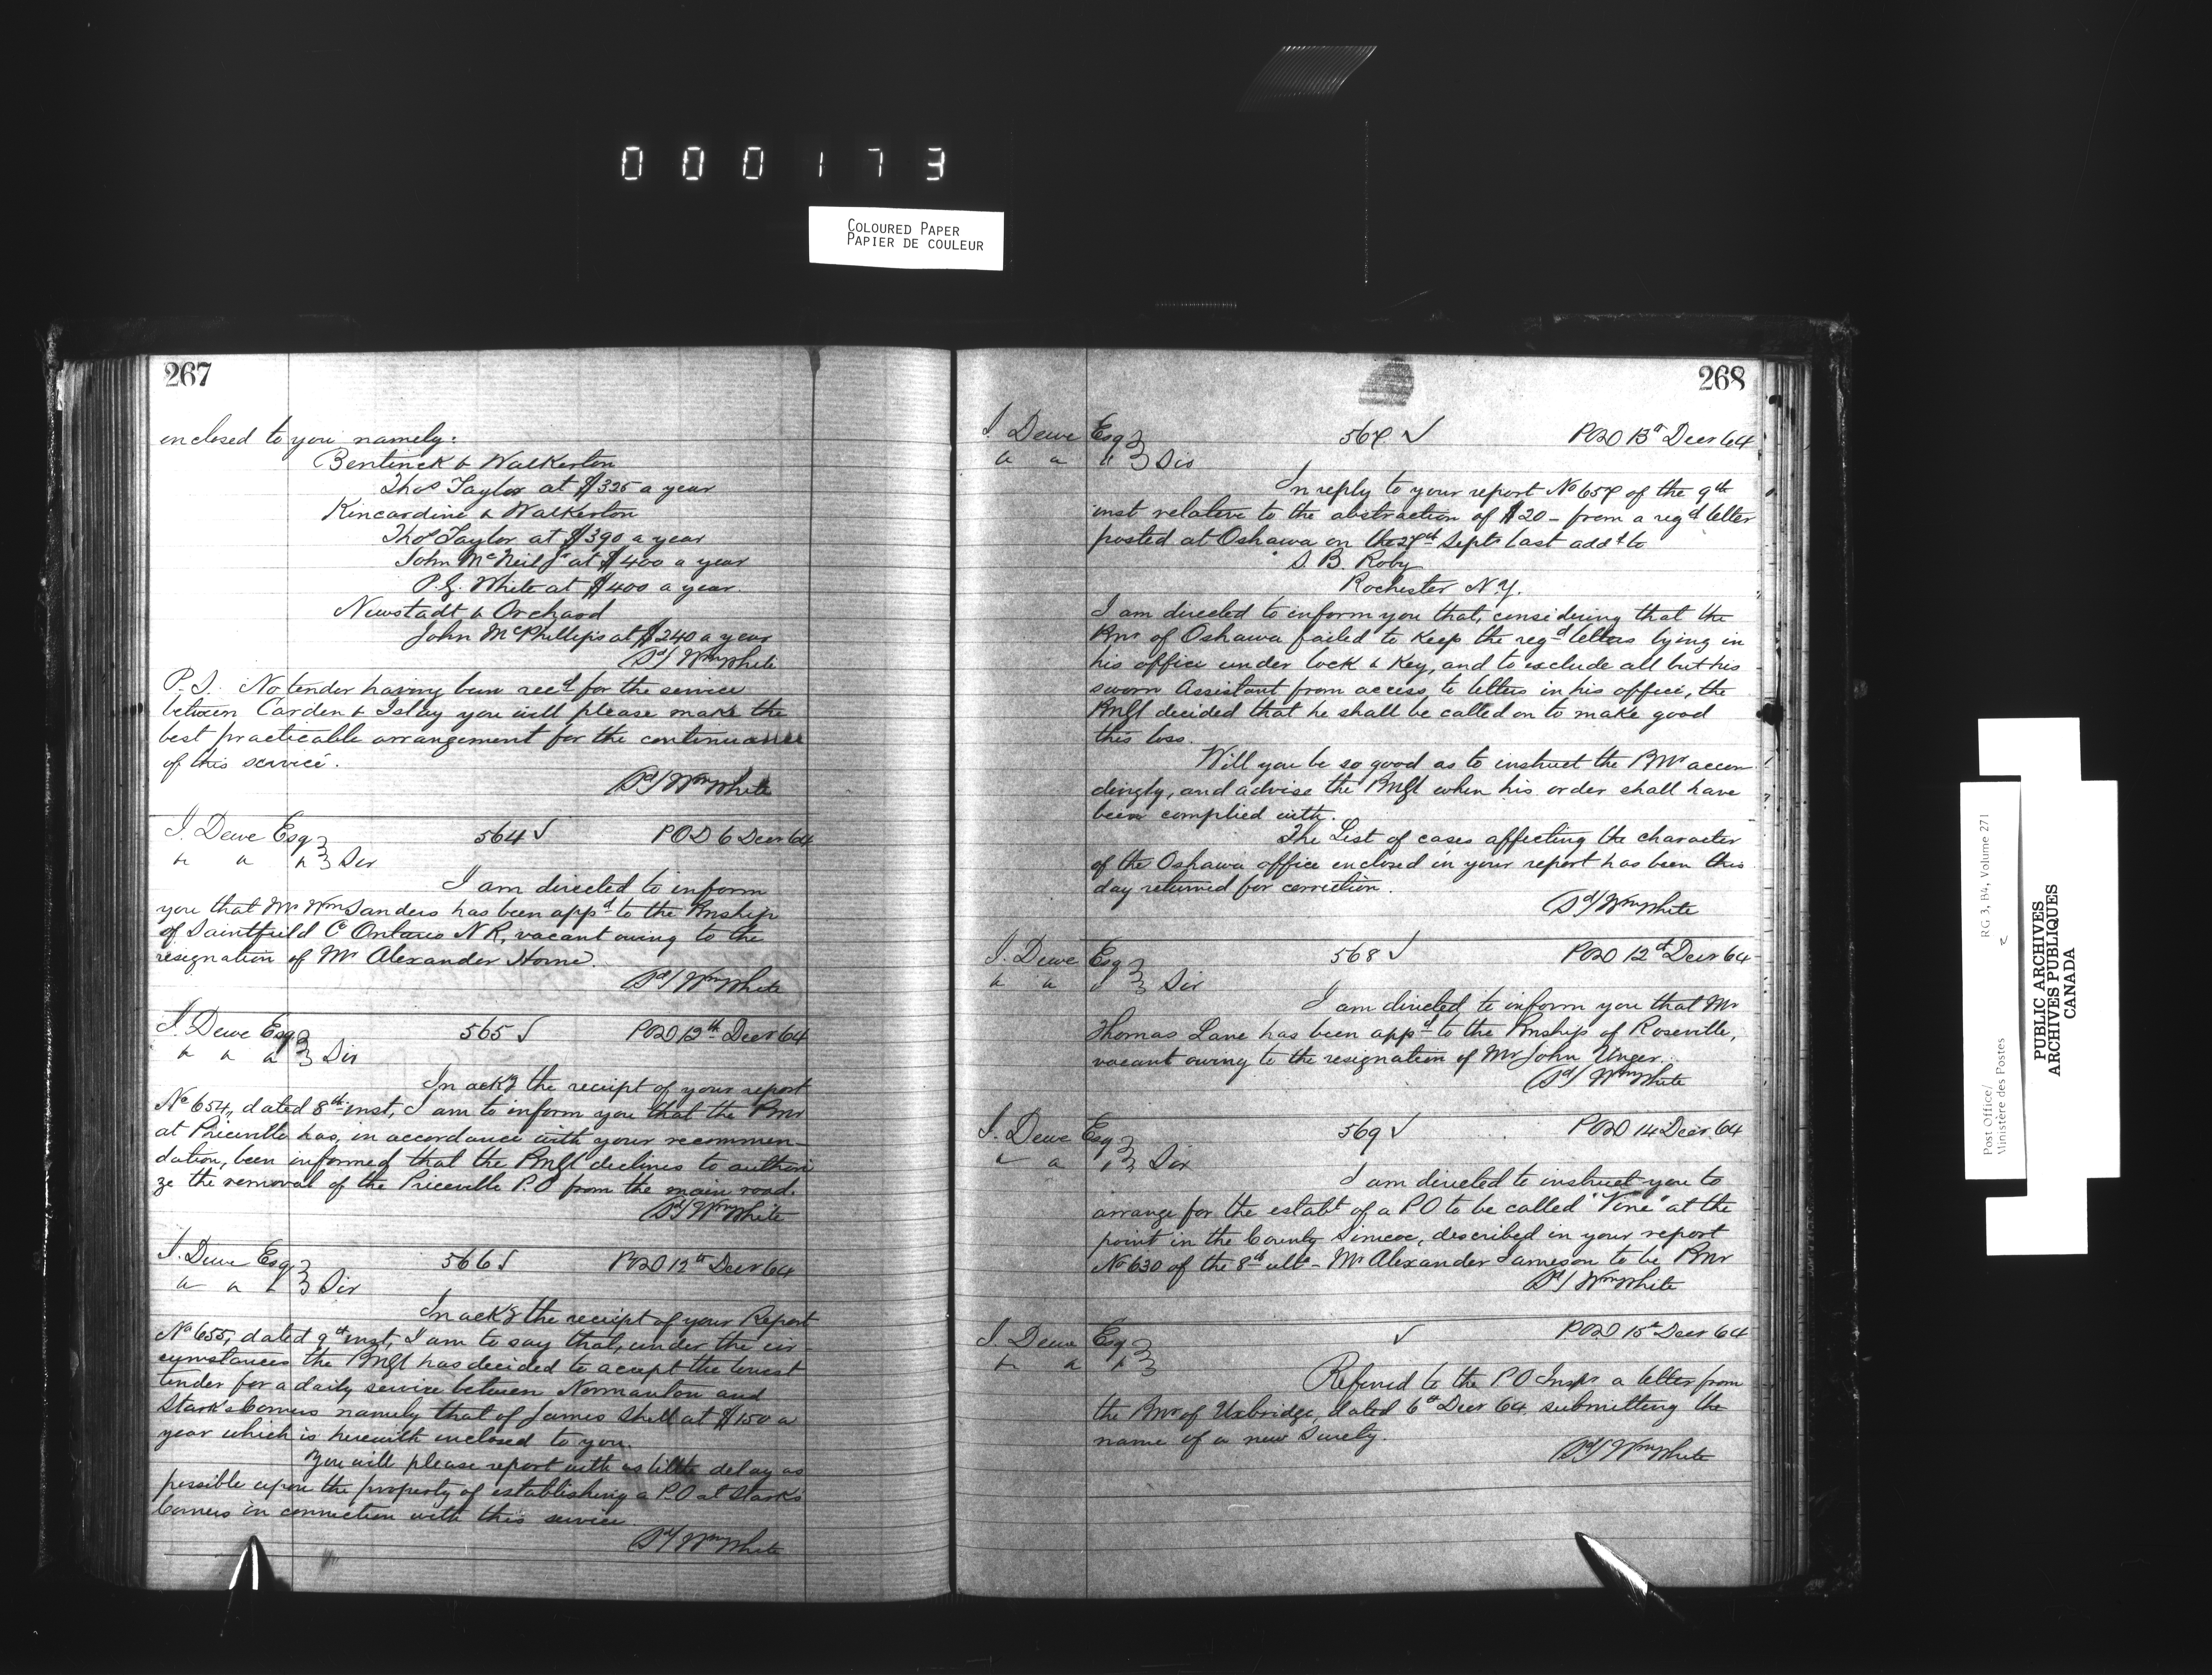 000173
COLOURED PAPER
PAPIER DE COULEUR
267
enclosed to you, namely:
Bentinck & Walkerton
Thos Taylor at $325 a year
Kincardine & Walkerton
Thos Taylor at $390 a year
John McNeil Jr at $400 a year
P. G. White at $400 a year.
Neustadt & Orchard
John McPhillips at $240 a year
Sd/ Wm White
P.S. No tender having been recd for the service
between Carden & Islay you will please make the
best practicable arrangement for the continuance
of this service.
Sd/ Wm White
J. Dewe Esq 564 ✓ POD 6 Decr 64
" " " Sir
I am directed to inform
you that Mr Wm Sanders has been appd to the Pmship
of Saintfield Co Ontario N R, vacant owing to the
resignation of Mr Alexander Horne.
Sd/ Wm White
J. Dewe Esq 565 ✓ POD 12th Decr 64
" " " Sir
In ackg the receipt of your report
No 654, dated 8th inst, I am to inform you that the Pmr
at Priceville has, in accordance with your recommen-
dation, been informed that the PMGl declines to authori
ze the removal of the Priceville P.O from the main road.
Sd/ Wm White
J. Dewe Esq 566 ✓ POD 12th Decr 64
" " " Sir
In ackg the receipt of your Report
No 655, dated 9th inst, I am to say that, under the cir-
cumstances the PMGl has decided to accept the lowest
tender for a daily service between Normanton and
Stark's Corners namely that of James Shell at $150 a
year which is herewith enclosed to you.
You will please report with as little delay as
possible upon the property of establishing a P.O at Stark's
Corners in connection with this service.
Sd/ Wm White
268
J. Dewe Esq 567 ✓ POD 13th Decr 64
" " " Sir
In reply to your report No 657 of the 9th
inst relative to the abstraction of $20 - from a regd letter
posted at Oshawa on the 27th Septr last addd to
S. B. Roby
Rochester N.Y.
I am directed to inform you that, considering that the
Pmr of Oshawa failed to keep the regd letters lying in
his office under lock & key, and to exclude all but his
sworn Assistant from access, to letters in his office, the
PMGl decided that he shall be called on to make good
this loss.
Will you be so good as to instruct the Pmr accor-
dingly, and advise the PMGl when his order shall have
been complied with.
The List of cases affecting the character
of the Oshawa office enclosed in your report has been this
day returned for correction.
Sd/ Wm White
J. Dewe Esq 568 ✓ POD 12th Decr 64
" " " Sir
I am directed to inform you that Mr
Thomas Lane has been appd to the Pmship of Roseville,
vacant owing to the resignation of Mr John Unger.
Sd/ Wm White
J. Dewe Esq 569 ✓ POD 14 Decr 64
" " " Sir
I am directed to instruct you to
arrange for the establt of a PO to be called "Vine" at the
point in the County Simcoe, described in your report
No 630 of the 8th ulto - Mr Alexander Jameson to be Pmr
Sd/ Wm White
J. Dewe Esq ✓ POD 15th Decr 64
" " "
Referred to the P O Inspr a letter from
the Pmr of Uxbridge, dated 6th Decr 64 submitting the
name of a new Surety.
Sd/ Wm White
Post Office/
Ministère des Postes
RG 3, B4, Volume 271
PUBLIC ARCHIVES
ARCHIVES PUBLIQUES
CANADA